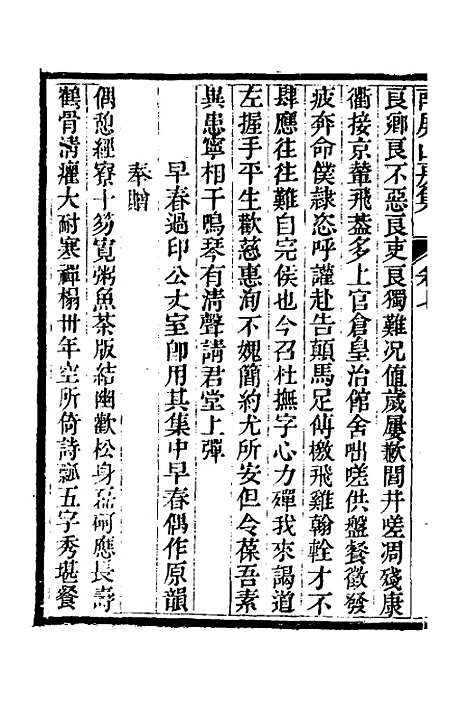 良鄉良不惡良吏良獨難況值歲屢歉閭井嗟凋殘康
衢接京輦飛蓋多上官倉皇治館舍咄嗟供盤餐徵發
疲奔命僕隸恣呼讙赴告顛馬足傳檄飛雞翰輇才不
肆應往往難自完侯也今召杜撫字心力殫我來謁道
左握手平生歡慈惠洵不媿簡約尤所安但令葆吾素
與患寧相干鳴琴有清聲請君堂上彈
早春過印公丈室卽用其集中早春偶作原韻
奉贈
偶憩經寮十笏寬粥魚茶版結幽歡松身磊砢應長壽
鶴骨清癯大耐寒禪榻卅年空所倚詩瓢五字秀堪餐